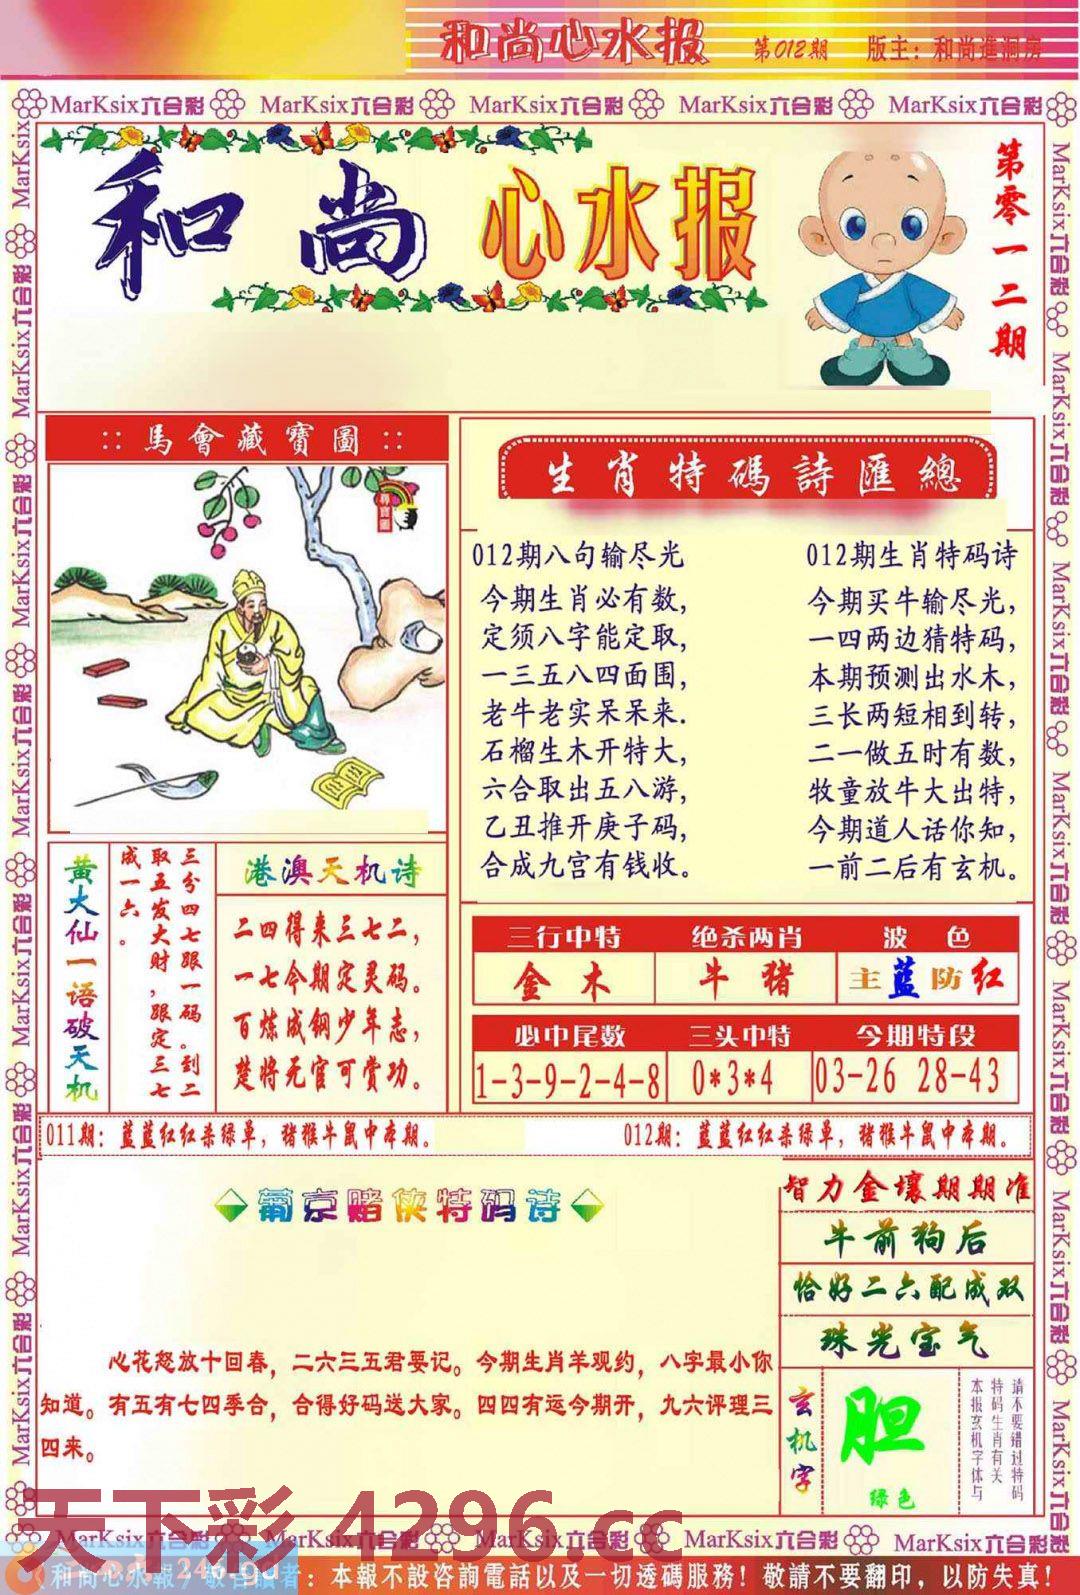 和尚心水报 第012期 版主：和尚進洞房
MarKsix六合彩 MarKsix六合彩 MarKsix六合彩 MarKsix六合彩 MarKsix六合彩
和尚心水报
第零一二期
::馬會藏寶圖::
尋寶圖
生肖特碼詩匯總
012期八句输尽光
今期生肖必有数,
定须八字能定取,
一三五八四面围,
老牛老实呆呆来.
石榴生木开特大,
六合取出五八游,
乙丑推开庚子码,
合成九宫有钱收。
012期生肖特码诗
今期买牛输尽光,
一四两边猜特码,
本期预测出水木,
三长两短相到转,
二一做五时有数,
牧童放牛大出特,
今期道人话你知,
一前二后有玄机。
黄大仙一语破天机
三分四七跟一码。到二
取五发大财,跟定三七
成一六。
港澳天机诗
二四得来三七二,
一七今期定灵码。
百炼成钢少年志,
楚将无官可赏功。
三行中特 绝杀两肖 波色
金木 牛猪 主蓝防红
必中尾数 三头中特 今期特段
1-3-9-2-4-8 0*3*4 03-26 28-43
011期：蓝蓝红红杀绿单，猪猴牛鼠中本期。 012期：蓝蓝红红杀绿单，猪猴牛鼠中本期。
葡京赌侠特码诗
心花怒放十回春，二六三五君要记。今期生肖羊观约，八字最小你
知道。有五有七四季合，合得好码送大家。四四有运今期开，九六评理三
四来。
智力金壤期期准
牛前狗后
恰好二六配成双
珠光宝气
玄机字
胆
绿色
请不要错过特码
特码生肖有关
本报玄机字体与
天下彩 4296.cc
MarKsix六合彩 MarKsix六合彩 MarKsix六合彩 MarKsix六合彩 MarKsix六合彩
和尚心水報 敬告讀者：本報不設咨詢電話以及一切透碼服務！敬請不要翻印，以防失真！